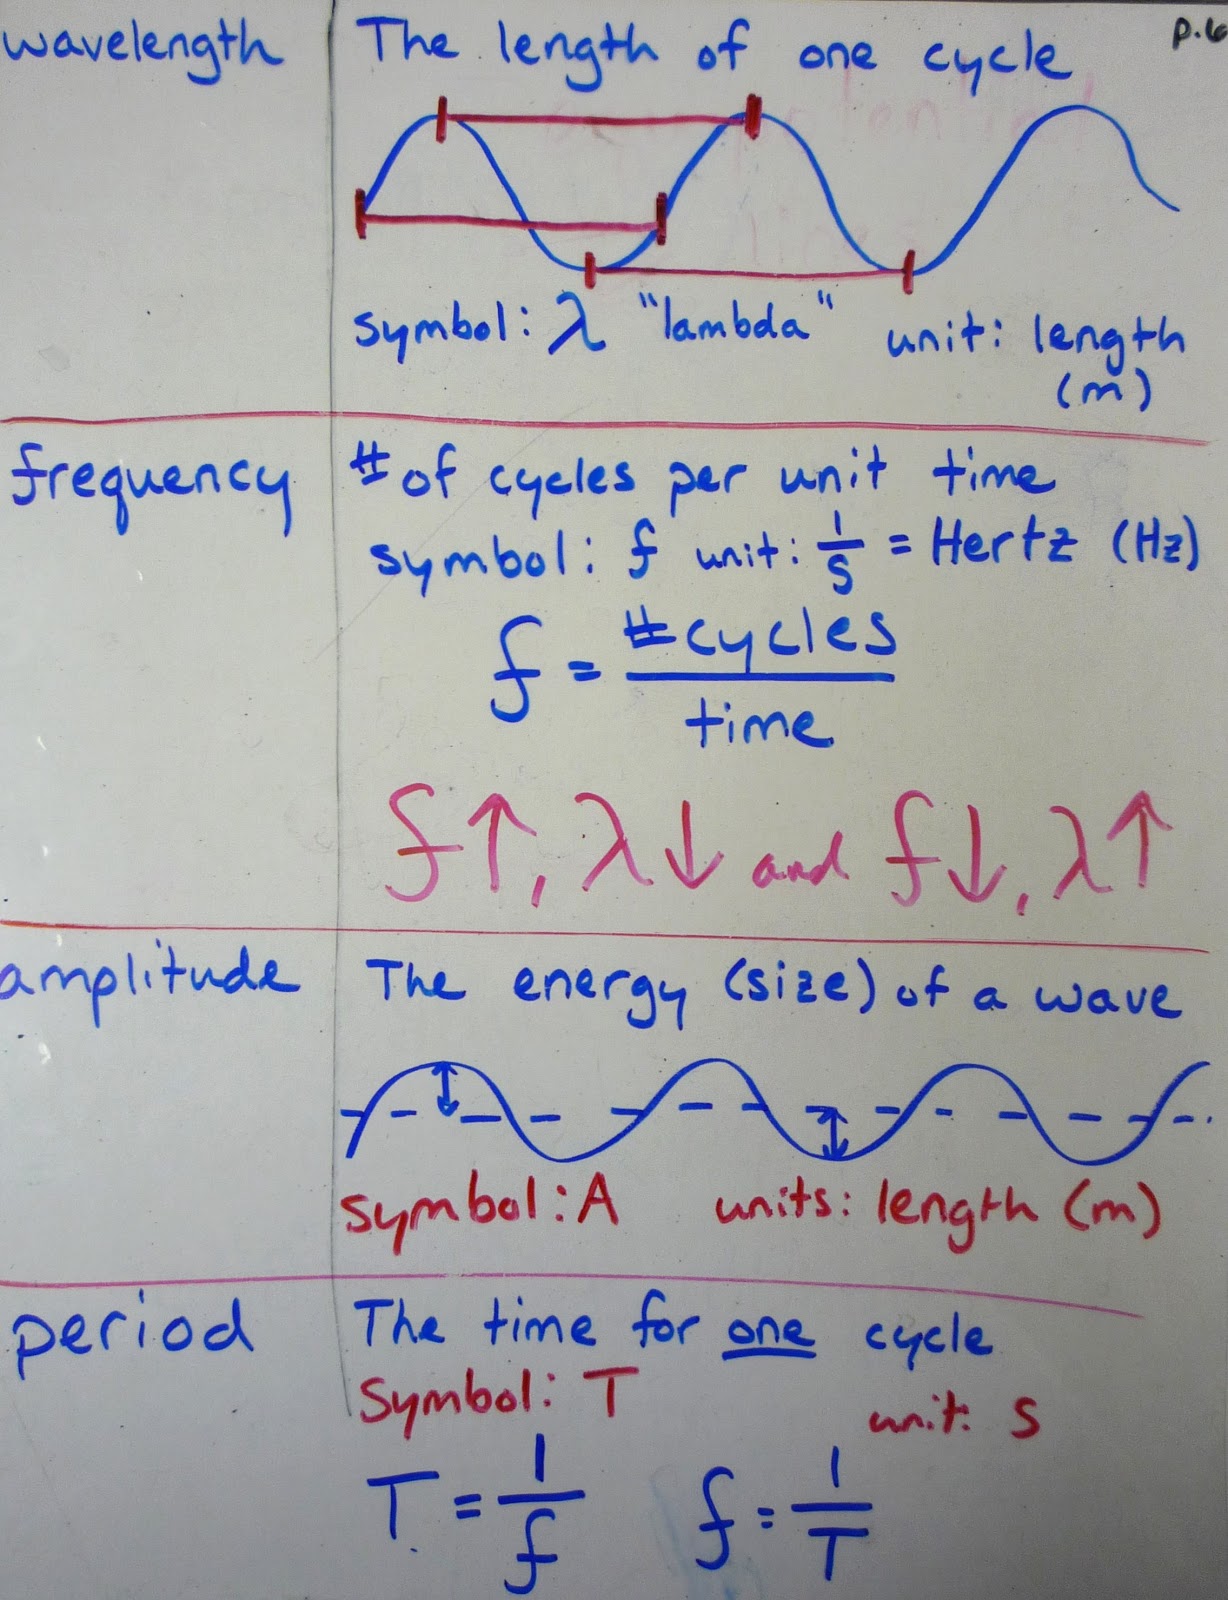 p.6
wavelength The length of one cycle
symbol: λ "lambda" unit: length
(m)
frequency # of cycles per unit time
symbol: f unit: 1/s = Hertz (Hz)
f = #cycles/time
f↑, λ↓ and f↓, λ↑
amplitude The energy (size) of a wave
symbol: A units: length (m)
period The time for one cycle
symbol: T unit: s
T = 1/f f = 1/T